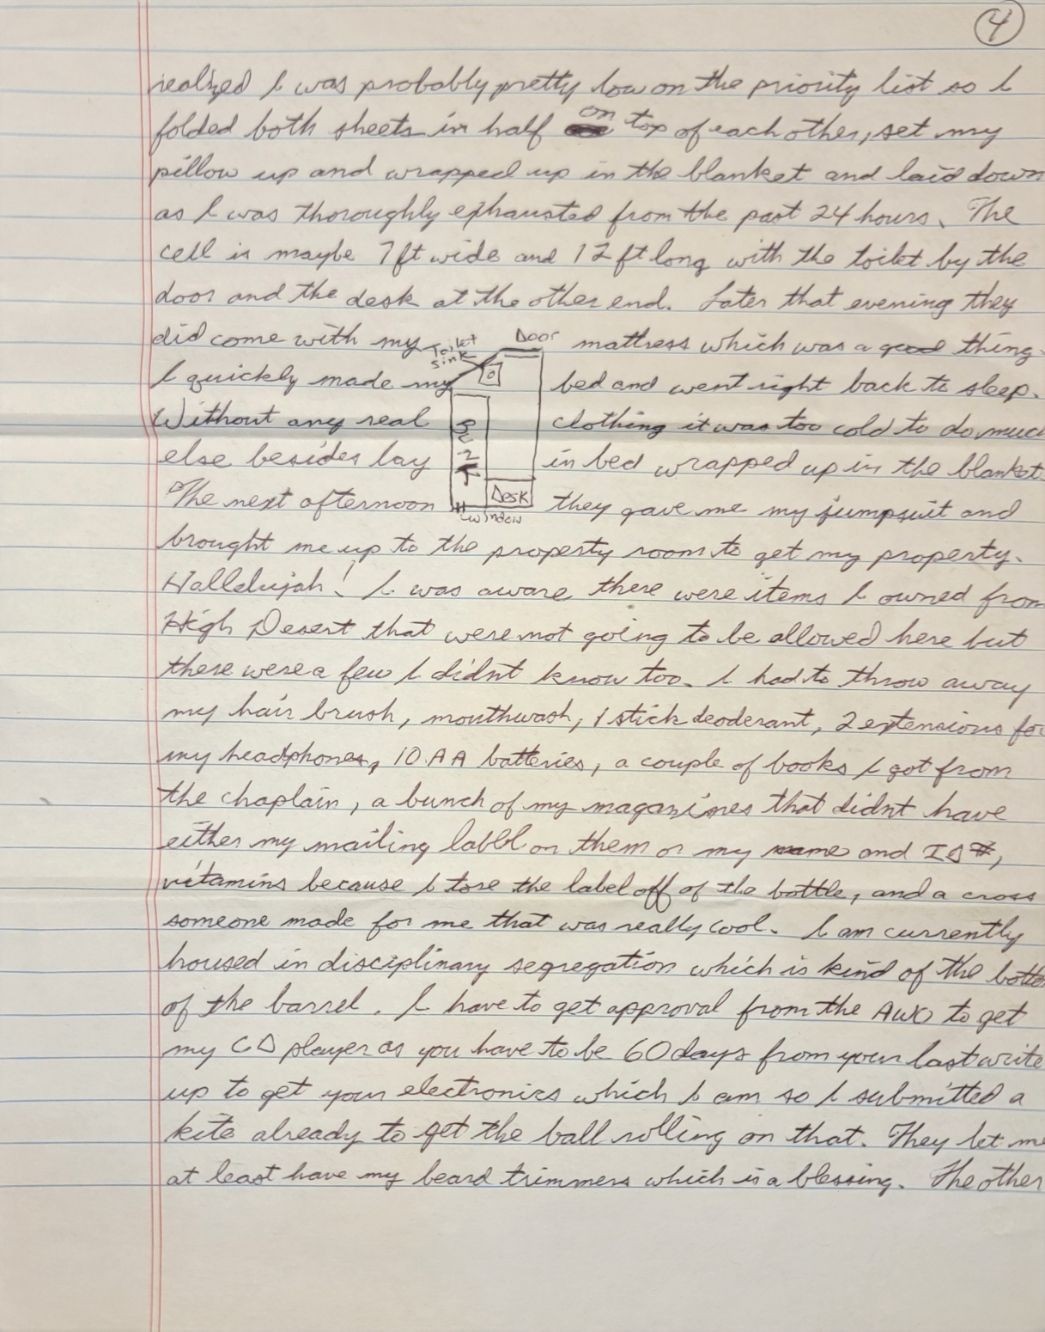 4
realized I was probably pretty low on the priority list so I
folded both sheets in half on top of each other, set my
pillow up and wrapped up in the blanket and laid down
as I was thoroughly exhausted from the past 24 hours. The
cell is maybe 7ft wide and 12ft long with the toilet by the
door and the desk at the other end. Later that evening they
did come with my mattress which was a good thing.
Toilet
Sink
Door
I quickly made my bed and went right back to sleep.
Without any real clothing it was too cold to do much
else besides lay in bed wrapped up in the blanket.
Bunk
Desk
The next afternoon they gave me my jumpsuit and
window
brought me up to the property room to get my property.
Hallelujah! I was aware there were items I owned from
High Desert that were not going to be allowed here but
there were a few I didnt know too. I had to throw away
my hair brush, mouthwash, 1 stick deoderant, 2 extensions for
my headphones, 10 AA batteries, a couple of books I got from
the chaplain, a bunch of my magazines that didnt have
either my mailing labbl on them or my name and ID #,
vitamins because I tore the label off of the bottle, and a cross
someone made for me that was really cool. I am currently
housed in disciplinary segregation which is kind of the botto
of the barrel. I have to get approval from the AWO to get
my CD player as you have to be 60 days from your last write
up to get your electronics which I am so I submitted a
kite already to get the ball rolling on that. They let me
at least have my beard trimmers which is a blessing. The other